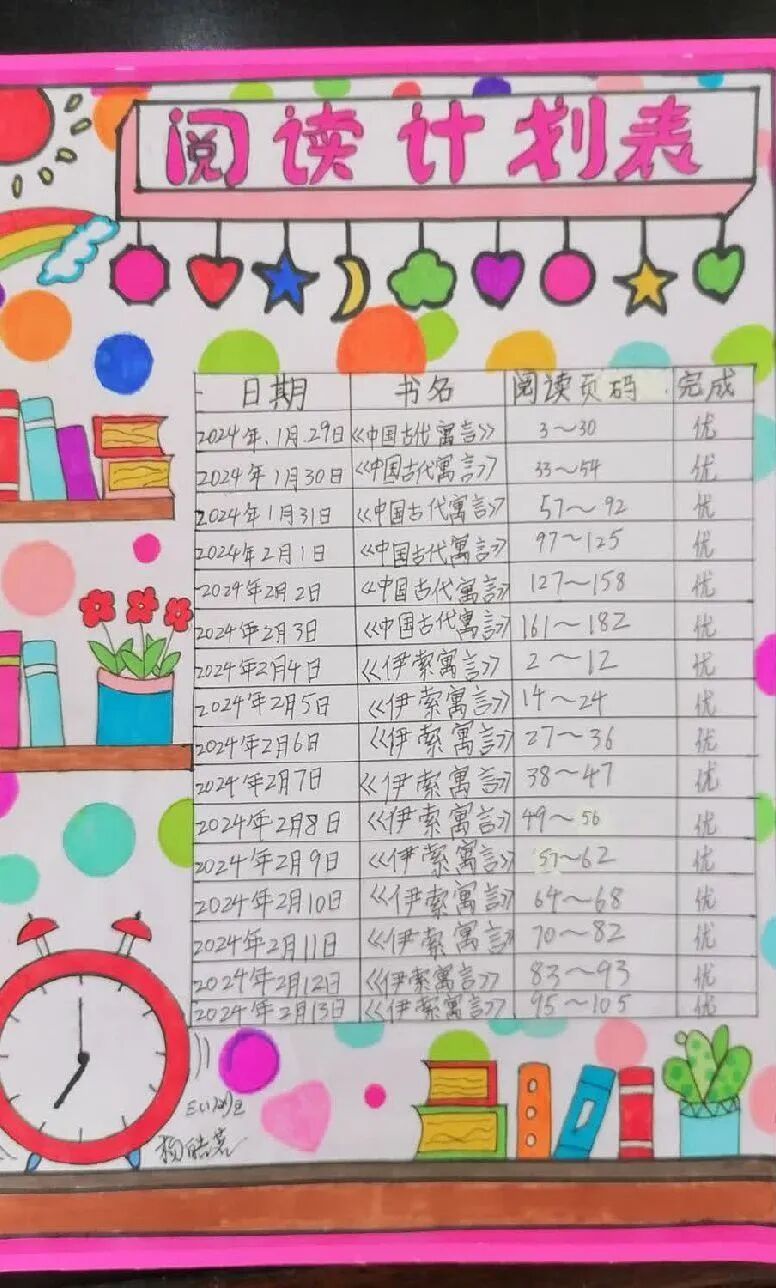 阅读计划表
日期 书名 阅读页码 完成
2024年1月29日 《中国古代寓言》 3～30 优
2024年1月30日 《中国古代寓言》 33～54 优
2024年1月31日 《中国古代寓言》 57～92 优
2024年2月1日 《中国古代寓言》 97～125 优
2024年2月2日 《中国古代寓言》 127～158 优
2024年2月3日 《中国古代寓言》 161～182 优
2024年2月4日 《伊索寓言》 2～12 优
2024年2月5日 《伊索寓言》 14～24 优
2024年2月6日 《伊索寓言》 27～36 优
2024年2月7日 《伊索寓言》 38～47 优
2024年2月8日 《伊索寓言》 49～56 优
2024年2月9日 《伊索寓言》 57～62 优
2024年2月10日 《伊索寓言》 64～68 优
2024年2月11日 《伊索寓言》 70～82 优
2024年2月12日 《伊索寓言》 83～93 优
2024年2月13日 《伊索寓言》 95～105 优